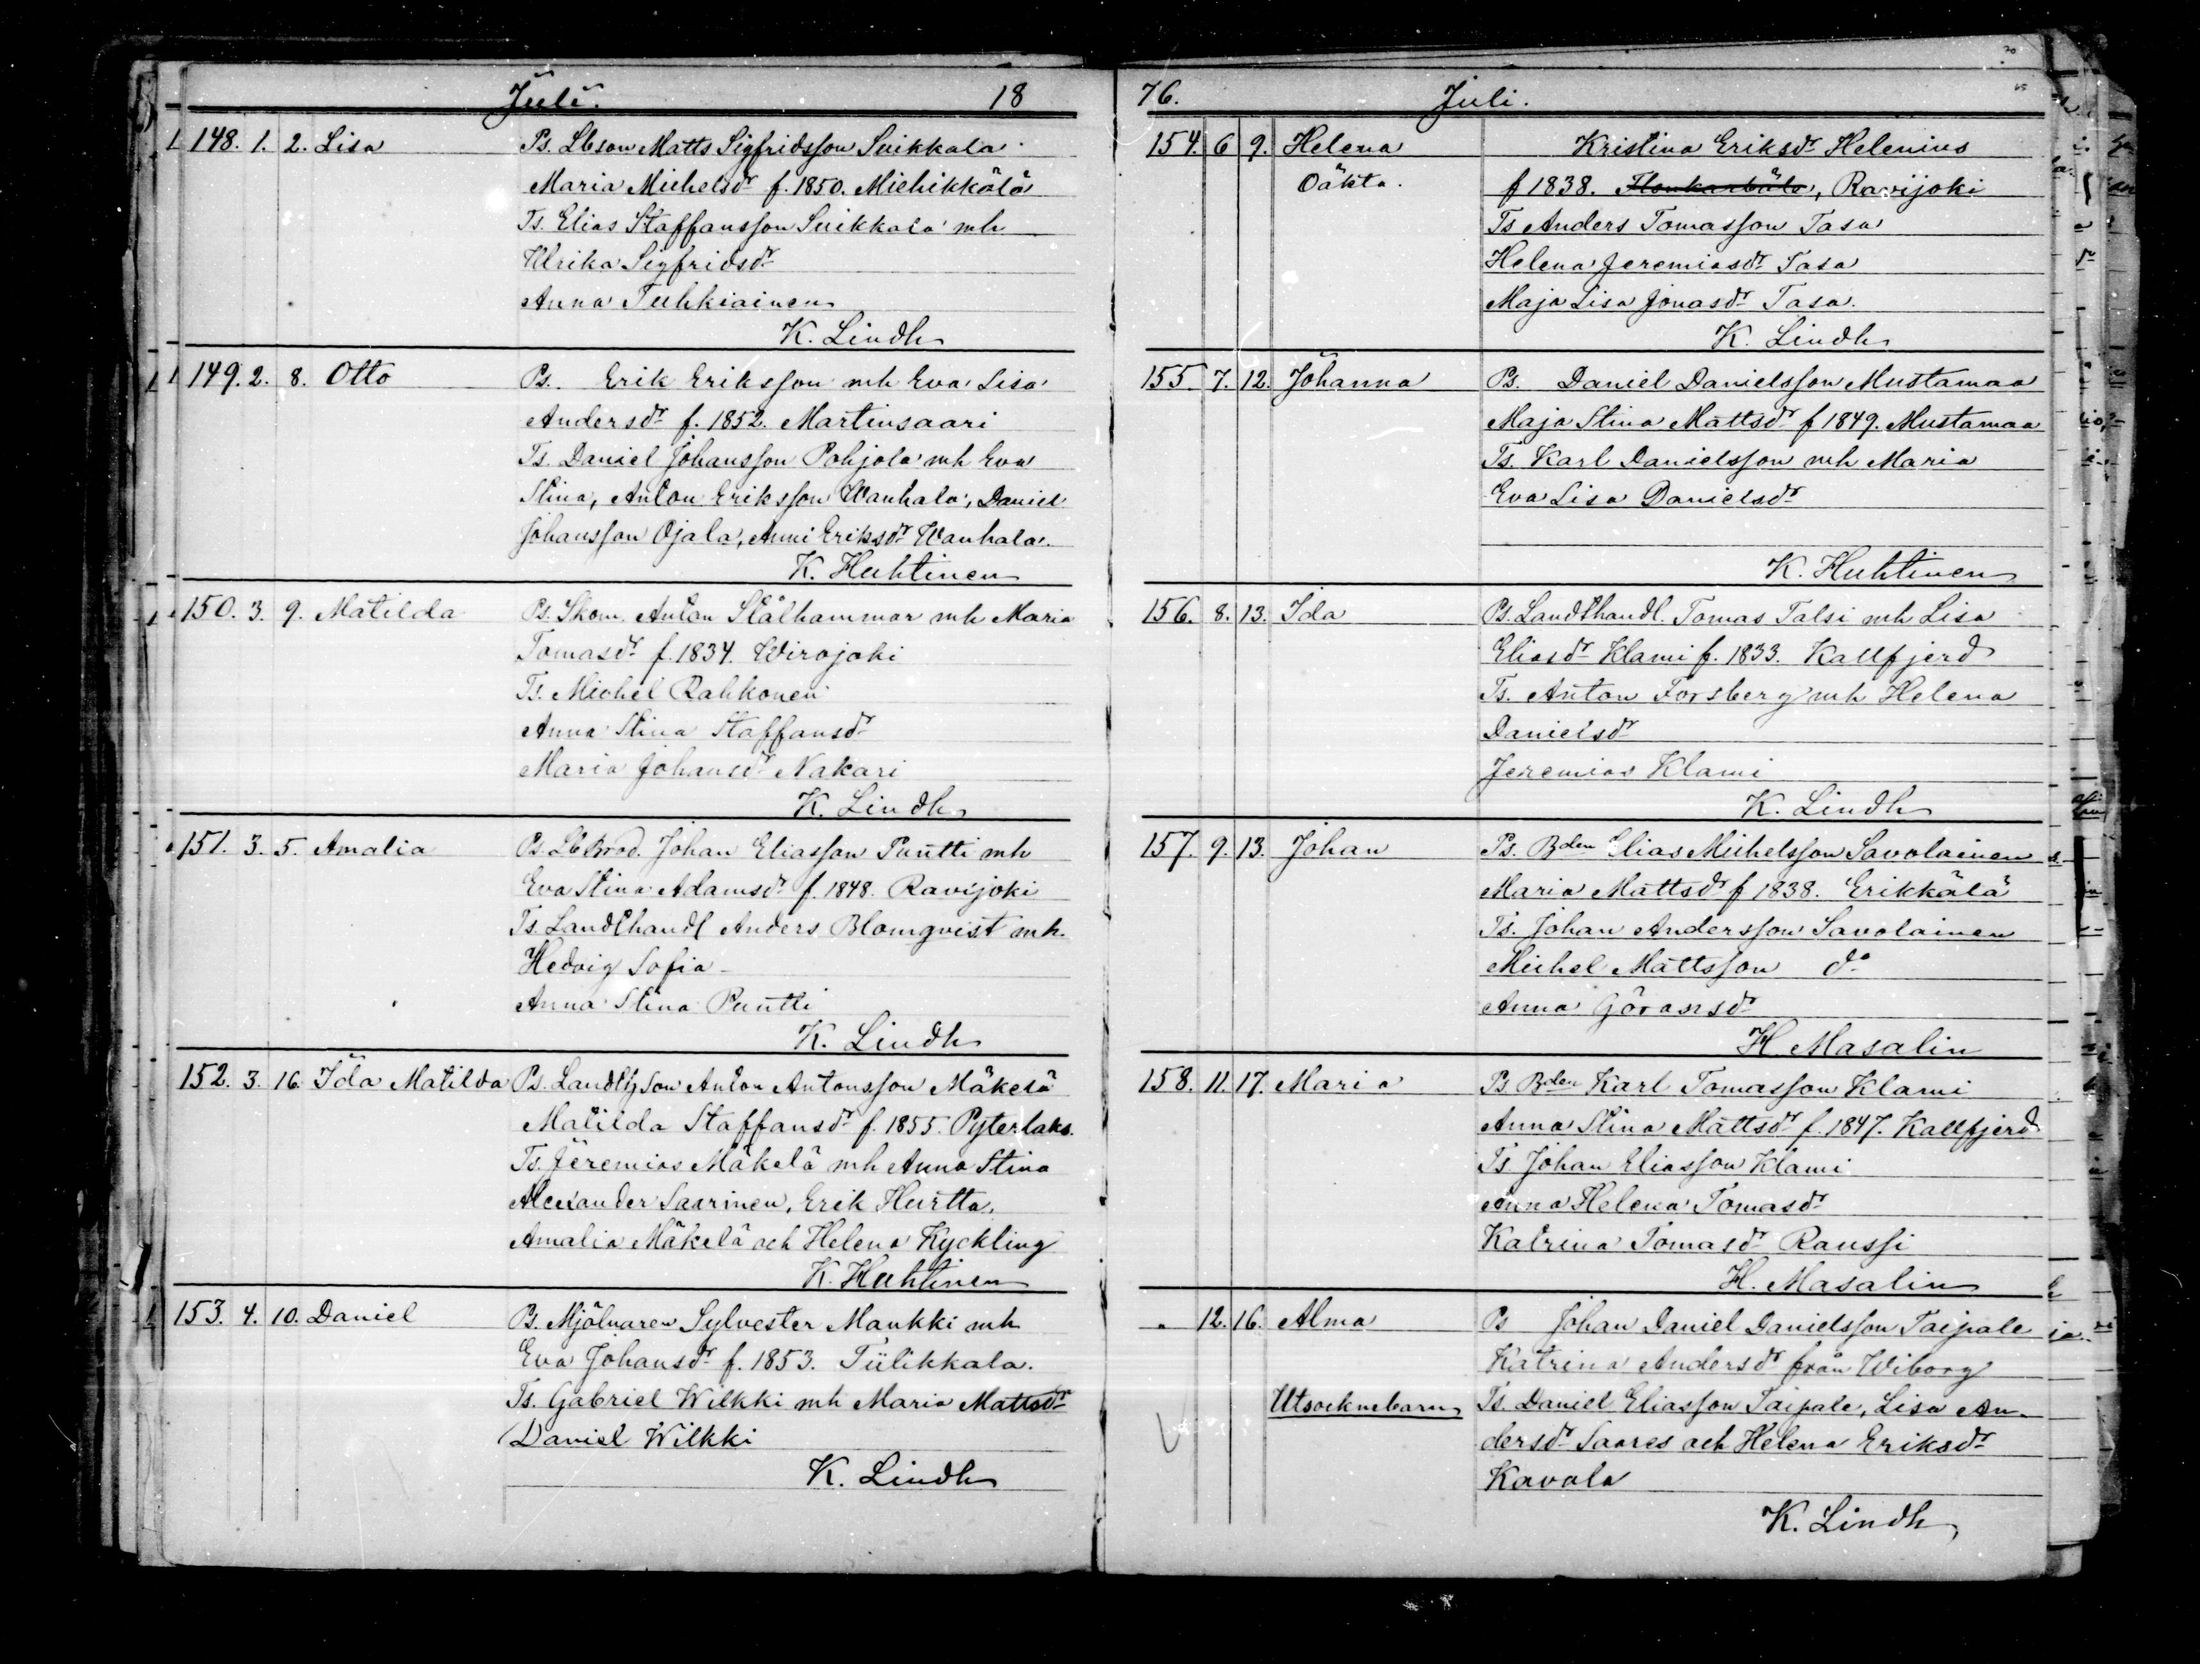 Juli. 18
148. 1. 2. Lisa Ps. Lbson Matts Sigfridsson Suikkala
Maria Michelsdr f. 1850. Miehikkälä
Ts. Elias Staffansson Suikkala mh
Ulrika Sigfridsdr
Anna Tuhkiainen
K. Lindh
149. 2. 8. Otto Ps. Erik Eriksson mh Eva Lisa
Andersdr f. 1852. Martinsaari
Ts. Daniel Johansson Pohjola mh Eva
Stina, Anton Eriksson Wanhala, Daniel
Johansson Ojala, Anni Eriksdr Wanhala.
K. Huhtinen
150. 3. 9. Matilda Ps. Skom. Anton Stålhammar mh Maria
Tomasdr f. 1834. Wirojoki
Ts. Michel Rahkonen
Anna Stina Staffansdr
Maria Johansdr Nakari
K. Lindh
151. 3. 5. Amalia Ps. Lb Brod. Johan Eliasson Puutti mh
Eva Stina Adamsdr f. 1848. Ravijoki
Ts. Landthandl Anders Blomqvist mh.
Hedvig Sofia
Anna Stina Puutti
K. Lindh
152. 3. 16. Ida Matilda Ps. Son Anton Antonsson Mäkelä
Matilda Staffansdr f. 1855. Pyterlaks.
Ts. Jeremias Mäkelä mh Anna Stina
Alexander Saarinen, Erik Hurtta,
Amalia Mäkelä och Helena Kyckling
K. Huhtinen
153. 4. 10. Daniel Ps. Mjölnaren Sylvester Mankki mh
Eva Johansdr f. 1853. Tiilikkala.
Ts. Gabriel Wilkki mh Maria Mattsdr
Daniel Wilkki
K. Lindh
76. Juli.
154. 6 9. Helena Kristina Eriksdr Helenius
Oäkta. f 1838. , Ravijoki
Ts Anders Tomasson Tasa
Helena Jeremiasdr Tasa
Maja Lisa Jonasdr Tasa.
K. Lindh
155. 7. 12. Johanna Ps. Daniel Danielsson Mustamaa
Maja Stina Mattsdr f 1849. Mustamaa
Ts. Karl Danielsson mh Maria
Eva Lisa Danielsdr
K. Huhtinen
156. 8. 13. Ida Ps. Landthandl. Tomas Talsi mh Lisa
Eliasdr Klami f. 1833. Kallfjerd
Ts. Anton Forsberg mh Helena
Danielsdr
Jeremias Klami
K. Lindh
157. 9. 13. Johan Ps. Bden Elias Michelsson Savolainen
Maria Mattsdr f 1838. Erikkälä
Ts. Johan Andersson Savolainen
Michel Mattsson do
Anna Göransdr
H. Masalin
158. 11. 17. Maria Ps Bden Karl Tomasson Klami
Anna Stina Mattsdr f. 1847. Kallfjerd
Ts. Johan Eliasson Klami
Anna Helena Tomasdr
Katrina Tomasdr Raussi
H. Masalin
12. 16. Alma Ps Johan Daniel Danielsson Taipale
Katrina Andersdr från Wiborg
Utsocknebarn Ts. Daniel Eliasson Taipale, Lisa An-
dersdr Saares och Helena Eriksdr
Kavala
K. Lindh